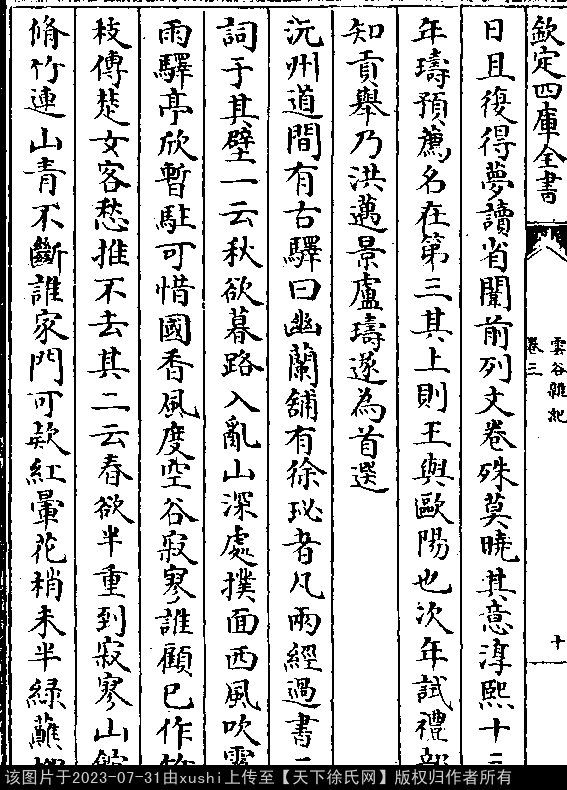 欽定四庫全書
雲谷雜紀
卷三
十
日且復得夢讀省闈前列文卷殊莫曉其意淳熙十
年璹預薦名在第三其上則王與歐陽也次年試禮部
知貢舉乃洪邁景盧璹遂為首選
沅州道間有古驛曰幽蘭舖有徐玭者凡兩經過書二
詞于其壁一云秋欲暮路入亂山深處撲面西風吹霧
雨驛亭欣暫駐可惜國香風度空谷寂寥誰顧已作竹
枝傳楚女客愁推不去其二云春欲半重到寂寥山館
脩竹連山青不斷誰家門可款紅暈花梢未半綠蘸
该图片于2023-07-31由xushi上传至【天下徐氏网】版权归作者所有